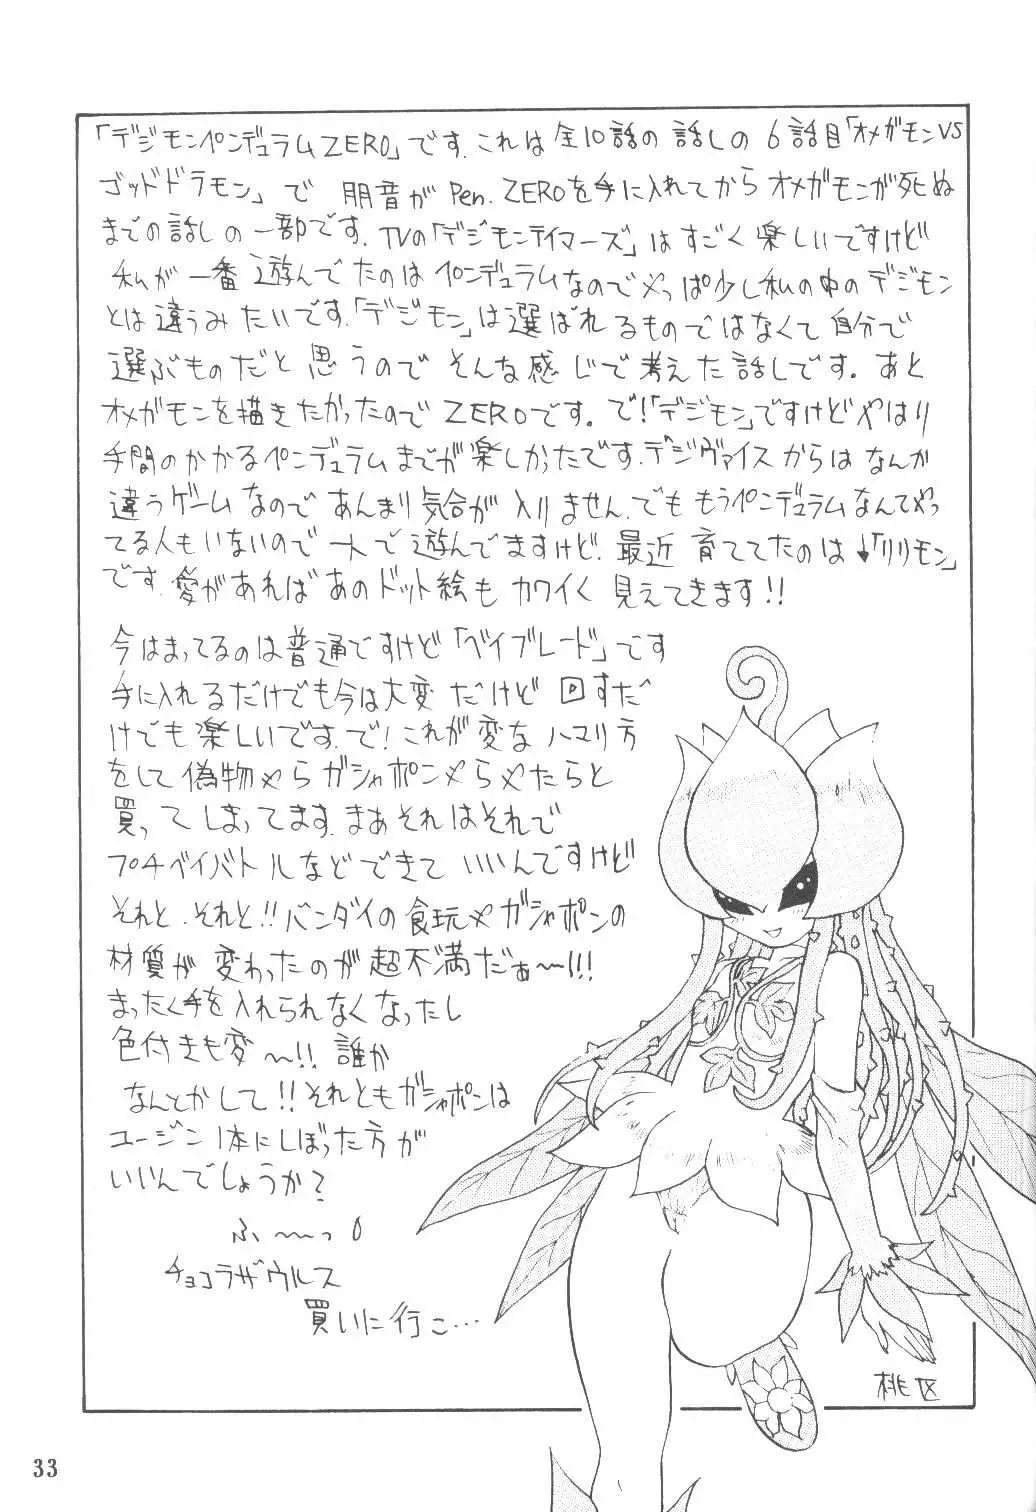 「デジモンペンデュラムZERO」です.これは全10話の話しの6話目「オメガモンVS
ゴッドドラモン」で朋音がPen.ZEROを手に入れてからオメガモンが死ぬ
までの話しの一部です.TVの「デジモンテイマーズ」はすごく楽しいですけど
私が一番遊んでたのはペンデュラムなのでやっぱ少し私の中のデジモン
とは違うみたいです.「デジモン」は選ばれるものではなくて自分で
選ぶものだと思うのでそんな感じで考えた話しです。あと
オメガモンを描きたかったのでZEROです。で!「デジモン」ですけどやはり
手間のかかるペンデュラムまでが楽しかったです.デジヴァイスからはなんか
違うゲームなのであんまり気合が入りません.でももうペンデュラムなんてやっ
てる人もいないので一人で遊んでますけど.最近育ててたのは↓「リリモン」
です.愛があればあのドット絵もカワイく見えてきます!!
今はまってるのは普通ですけど「ベイブレード」です
手に入れるだけでも今は大変だけど回すだ
けでも楽しいです.で!これが変なハマり方
をして偽物やらガシャポンやらやたらと
買ってしまってます.まあそれはそれで
プチベイバトルなどできていいんですけど
それと.それと!!バンダイの食玩やガシャポンの
材質が変わったのが超不満だぁ〜!!!
まったく手を入れられなくなったし
色付きも変〜!!誰か
なんとかして!!それともガシャポンは
ユージン1本にしぼった方が
いいんでしょうか?
ふ〜っ
チョコラザウルス
買いに行こ…
桃区
33